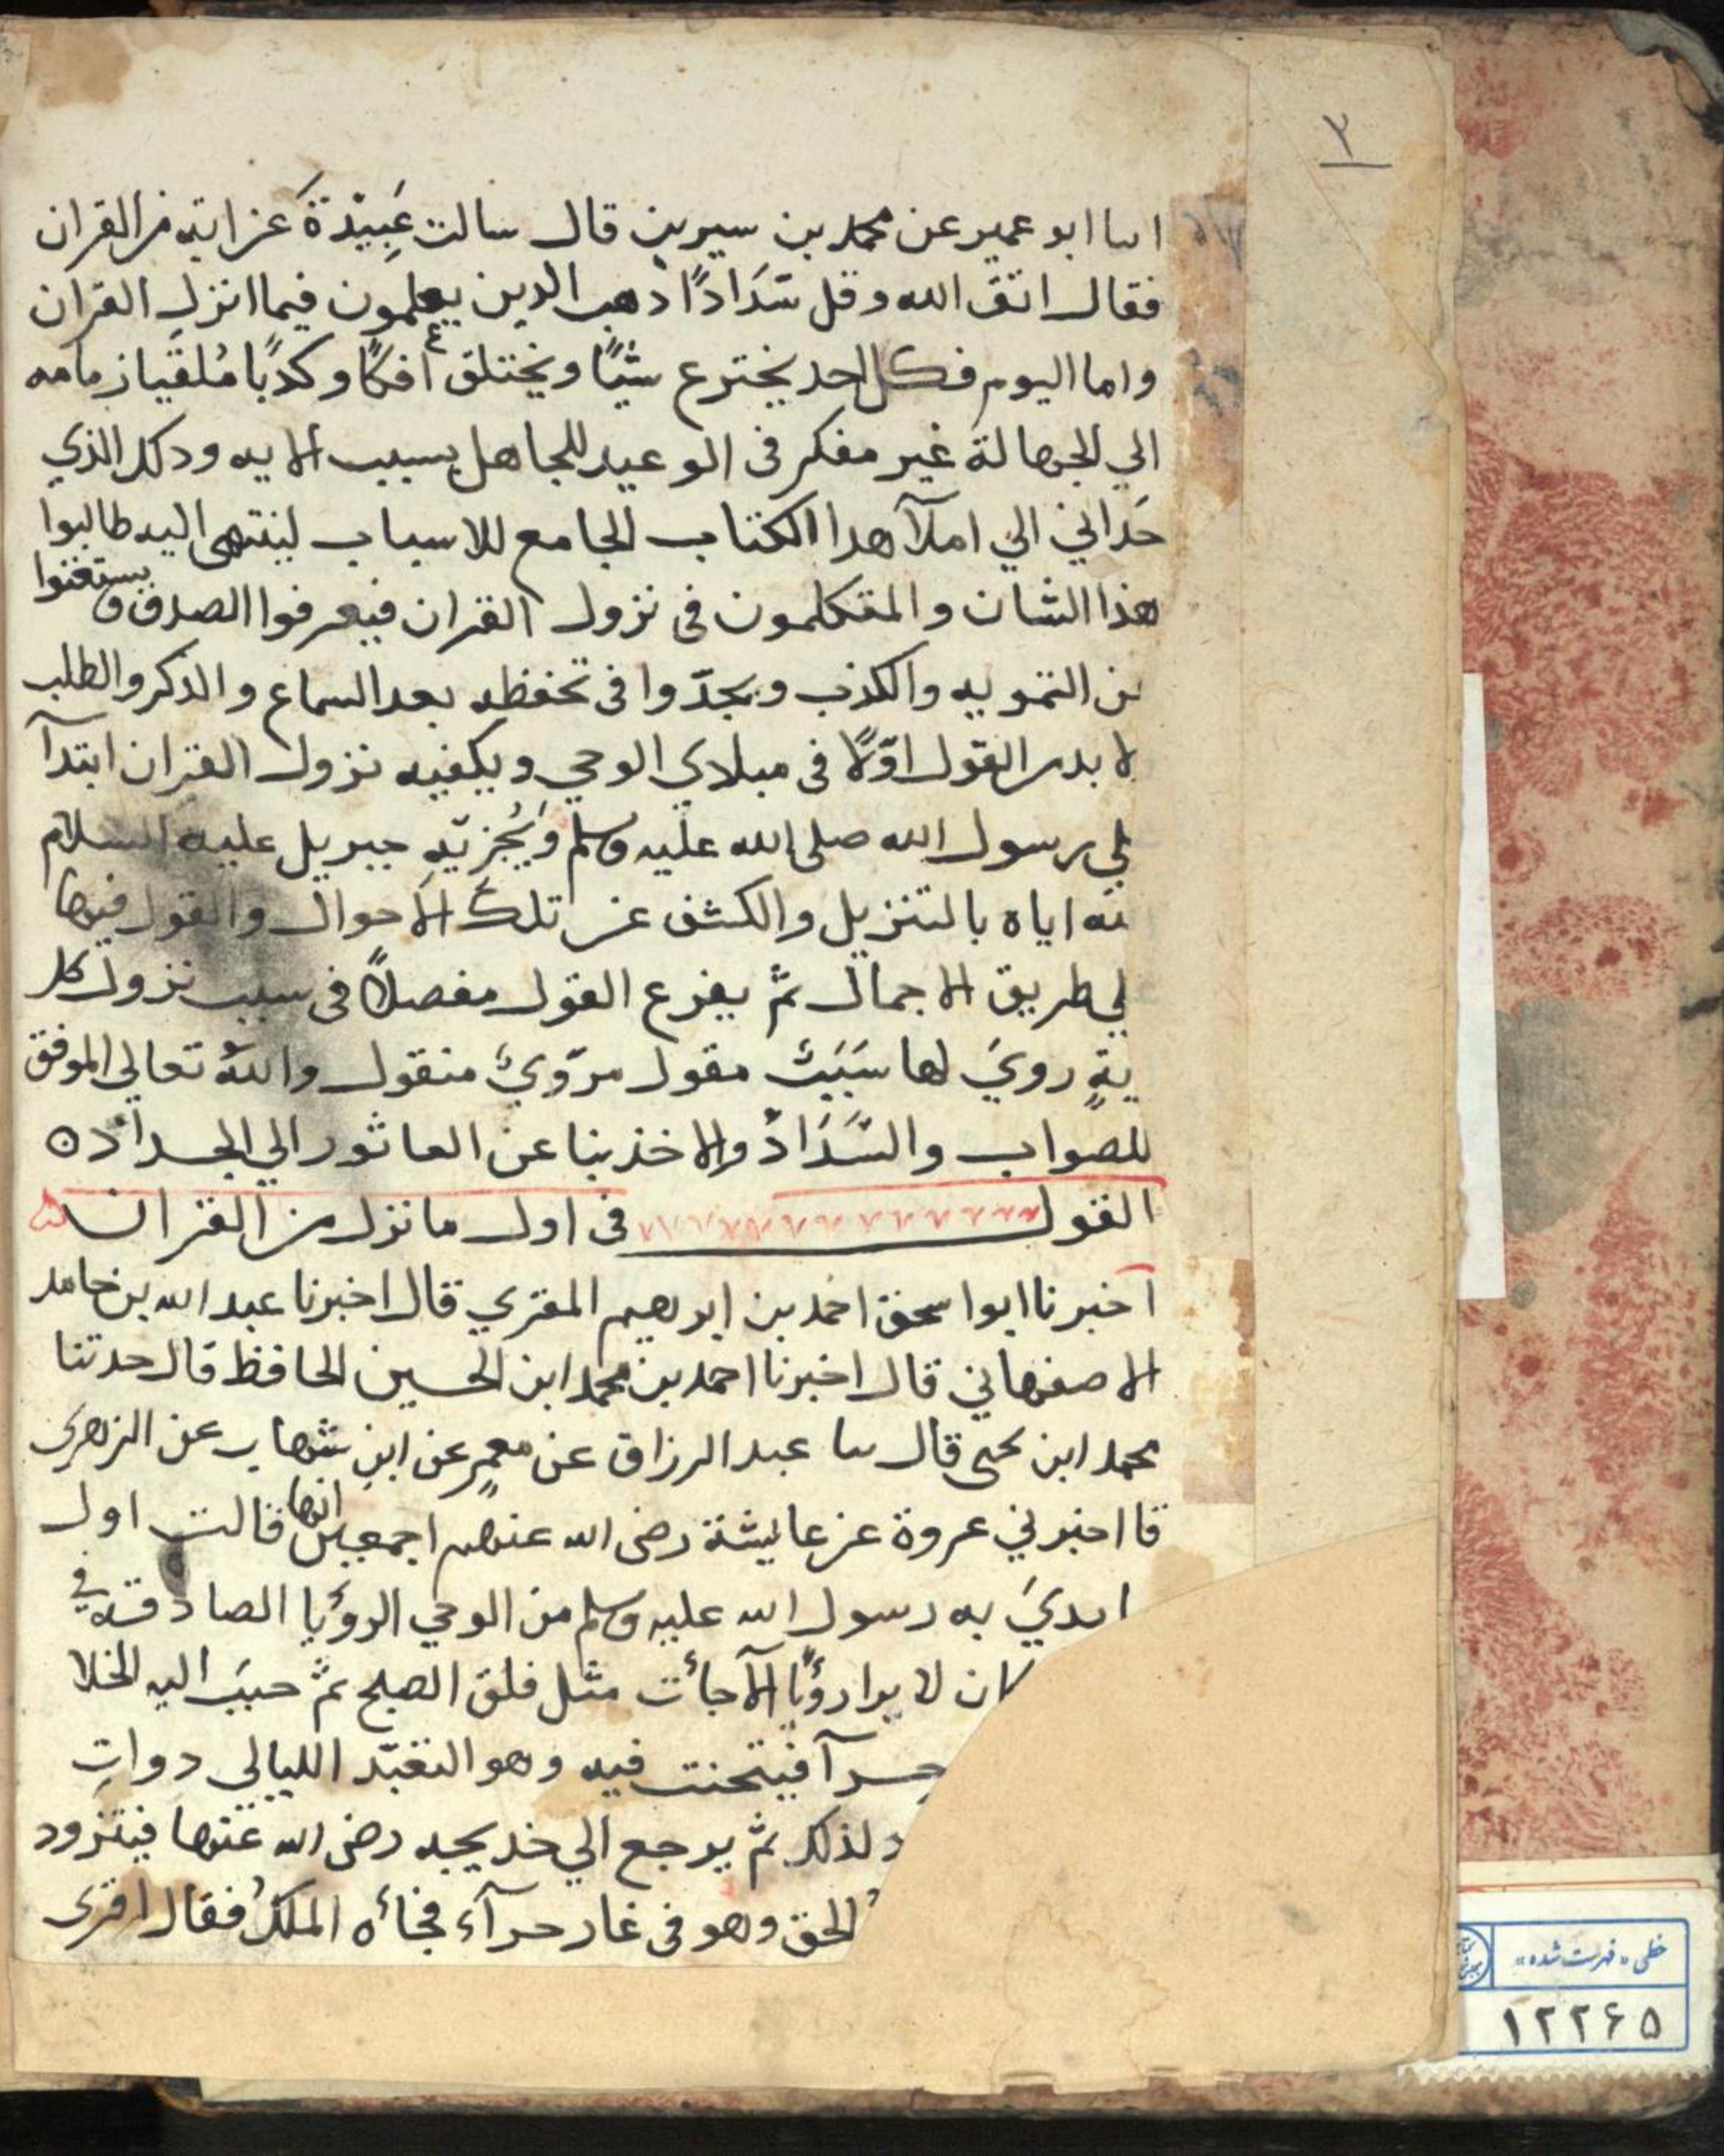 ٣
انبا ابو عمير عن محمد بن سيرين قال سالت عَبِيْدَةَ عن اية من القران
فقال اتق الله وقل سَدَادًا ذهب الدين يعلمون فيما انزل القران
واما اليوم فكل احد يخترع شيًا ويختلق افكًا وكذبًا مُلقيا زمامه
الي الجهالة غير مفكر فى الوعيد للجاهل بسبب الايه ودلك الذي
حَداني الي املآ هدا الكتاب الجامع للاسباب لينتهى اليه طالبوا
هذا الشان والمتكلمون فى نزول القران فيعرفوا الصدق ويستغنوا
ن التمويه والكذب ويجدّوا فى تحفظه بعد السماع والدكر والطلب
لا بد القول اوّلًا فى مبادي الوحي ويكفيه نزول القران ابتدآ
لي رسول الله صلى الله عليه وسلم جبريل عليه السلام
ته اياه بالتنزيل والكشف عن تلك الاحوال والقول فيها
لي طريق الاجمال ثم يفرع القول مفصلًا فى سبب نزول كل
يةٍ رويَ لها سَبَبٌ مقول مروّيٌ منقول واللهُ تعالي الموفق
للصواب والسَّدَادْ والاخذ بنا عن العاثور الي الجدادْ ه
القول فى اول ما نزل من القران
اخبرنا ابوا سحق احمد بن ابرهيم المقري قال اخبرنا عبد الله بن حامد
الاصفهاني قال اخبرنا احمد بن محمد ابن الحسين الحافظ قال حدتنا
محمد ابن يحيى قال سا عبد الرزاق عن معمرٍ عن ابنِ شهاب عن الزهرى
قا اخبرني عروة عن عايشة رضى الله عنهم اجمعين انها قالت اول
ابديَ به رسول الله عليه وسلم من الوحي الروْيا الصادقة فى
كان لا يرا روْيًا الآ جائت مثل فلق الصبح ثمَّ حببَ اليه الخلا
حرآ فيتحنث فيه وهو التعبّد الليالي دواتِ
د لذلك ثمَّ يرجع الي خديجه رضى الله عنها فيتزود
الحق وهو فى غار حرآء فجائه الملكُ فقال اقرى
خطى «فهرست شده»
١٢٢۶۵